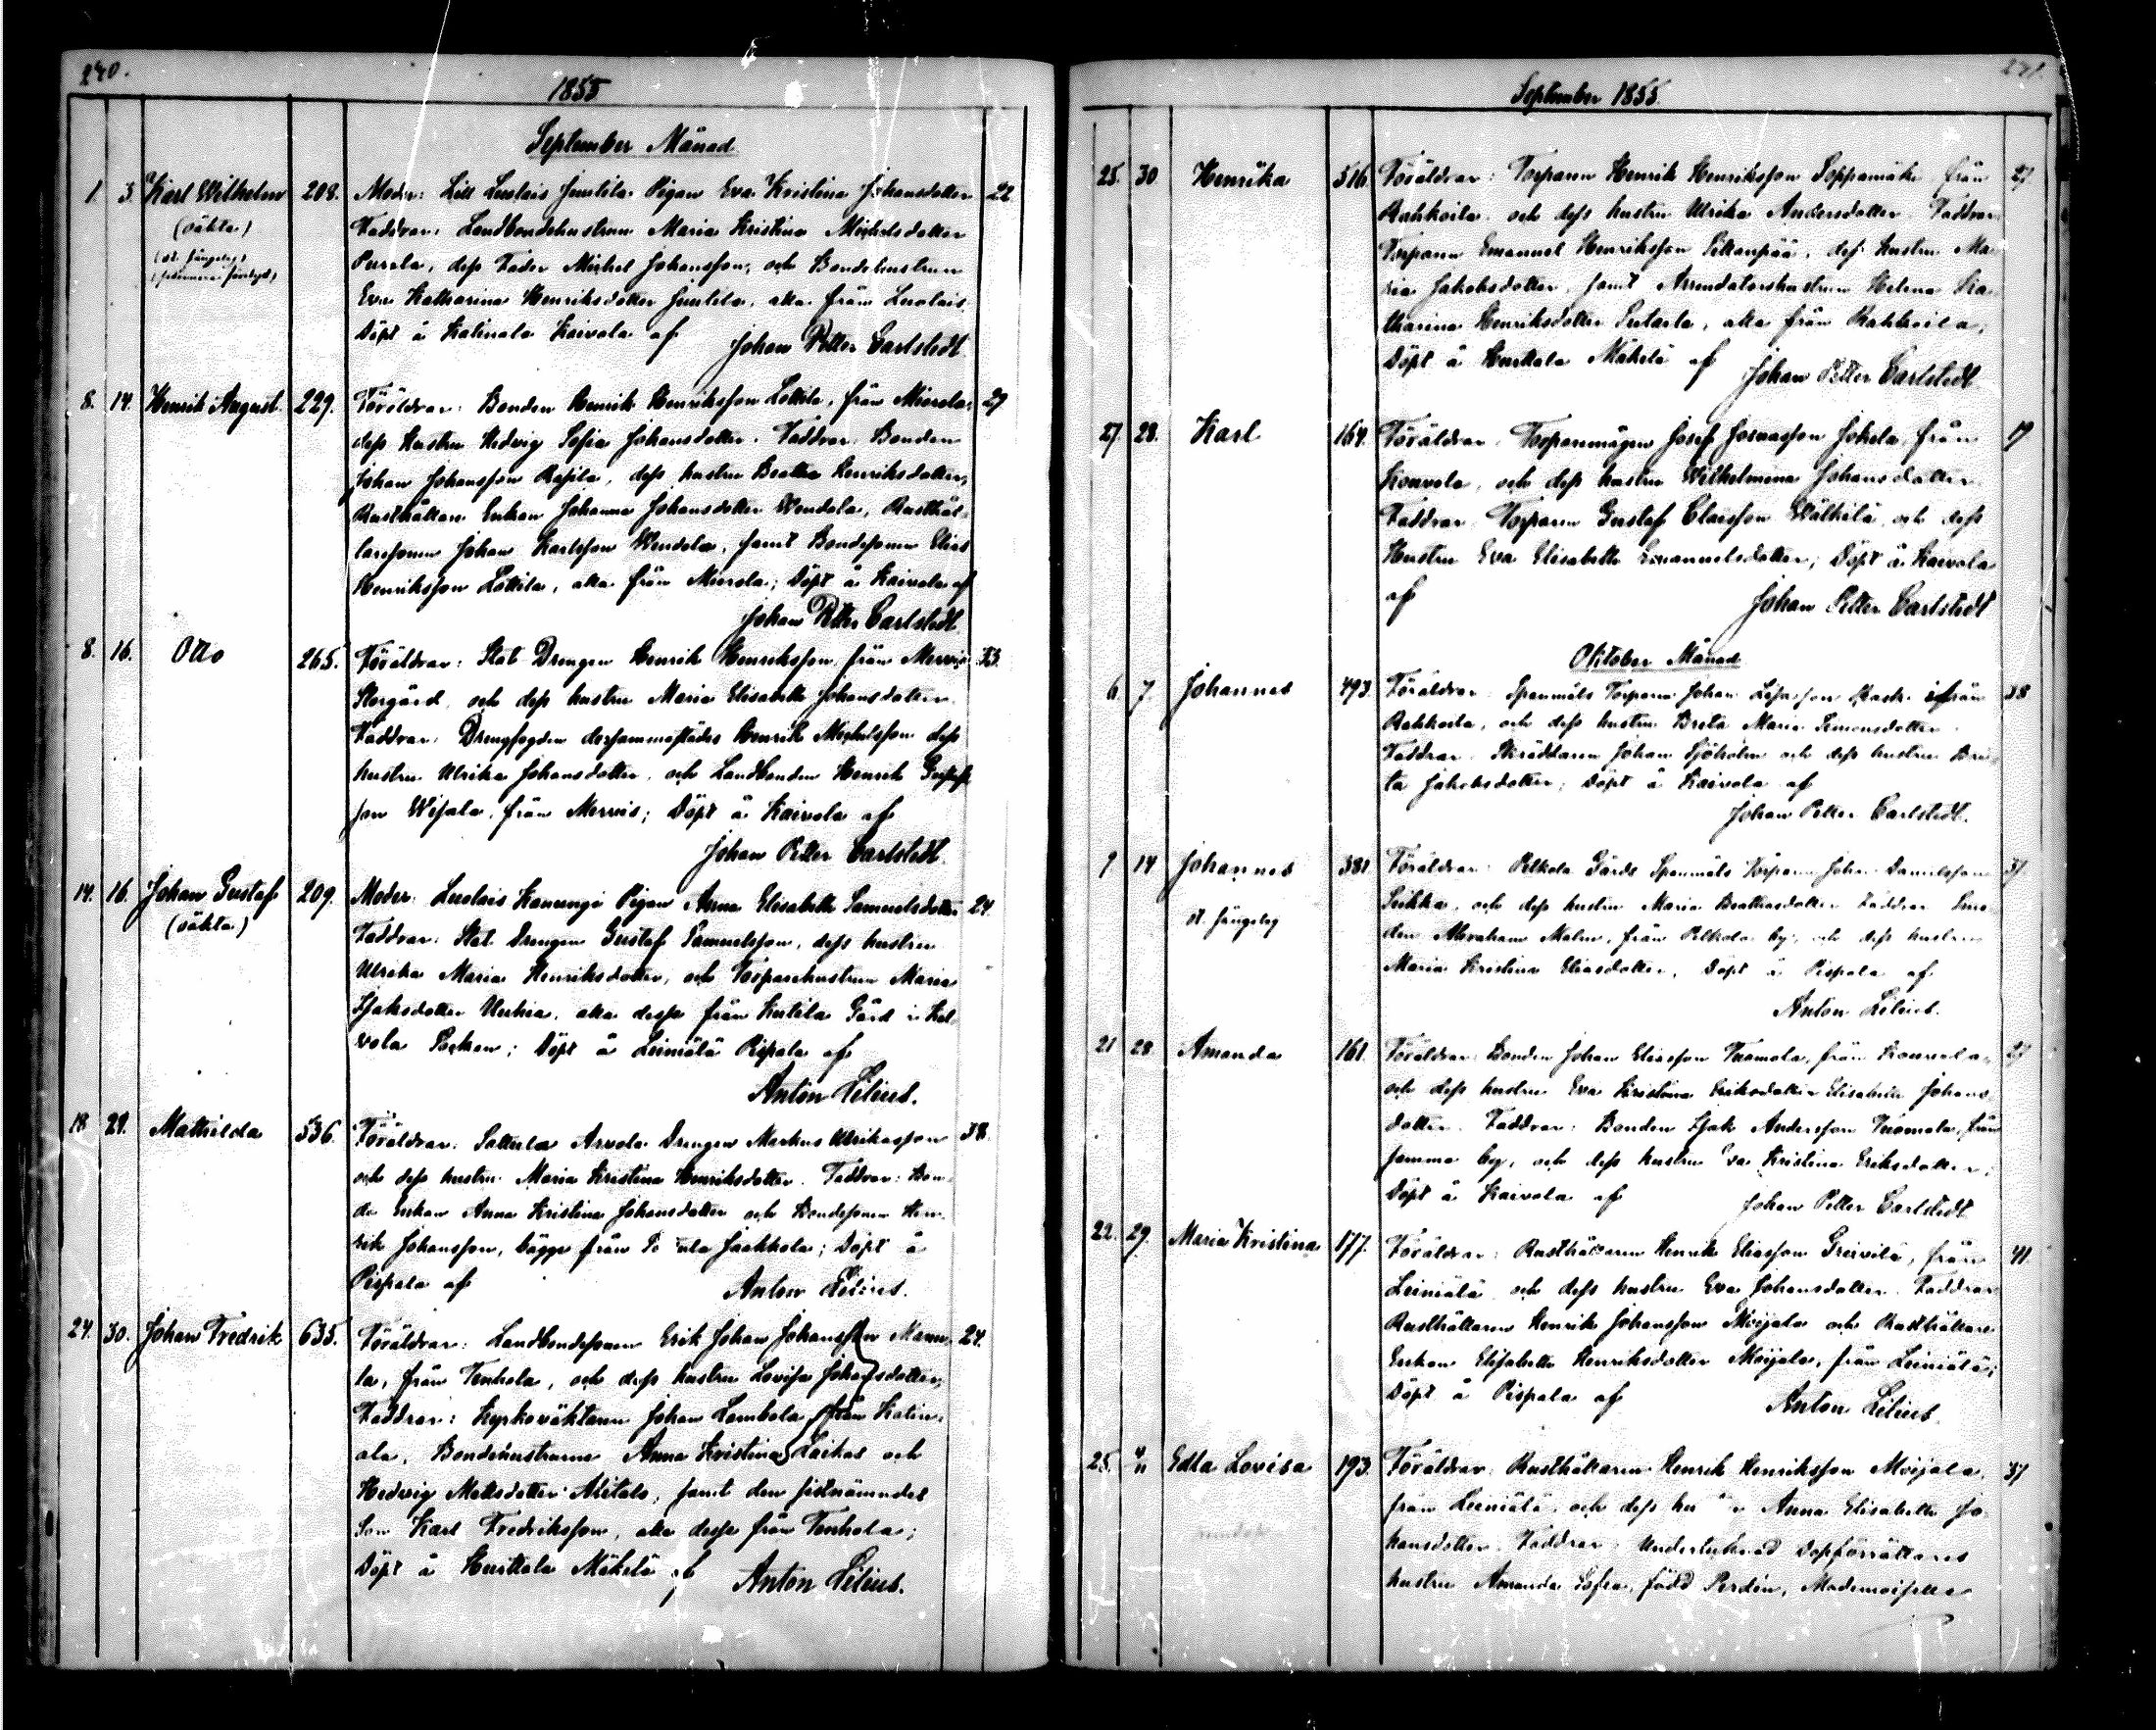 240.
1855
September Månad
1. 3. Karl Wilhelm 208. Moder: Lill Luolais Junttila Pigan Eva Kristina Johansdotter 22.
(oäkta) Faddrar: Landbondehustrun Maria Kristina Michelsdotter
Purola, dess Fader Michel Johansson, och Bondehustrun
Eva Katharina Henriksdotter Junttila, alla från Luolais.
Döpt å Katinala Kaivola af Johan Petter Carlstedt
8. 14. Henrik August. 229. Föräldrar: Bonden Henrik Henriksson Lottila, från Mierola, 29
dess Hustru Hedvig Sofia Johansdotter. Faddrar: Bonden
Johan Johansson Rasila, dess hustru Beatha Henriksdotter,
Rusthållare Enkan Johanna Johansdotter Wendola, Rusthål-
laresonen Johan Karlsson Wendola, samt Bondesonen Elias
Henriksson Lottila, alla från Mierola; Döpt å Kaivola af
Johan Petter Carlstedt.
8. 16. Otto 265. Föräldrar: Stat Drengen Henrik Henriksson från Mervis 33.
Storgård, och dess hustru Maria Elisabeth Johansdotter.
Faddrar: Drengfogden dersammastädes Henrik Michelsson dess
hustru Ulrika Johansdotter, och Landbonden Henrik Gustafs
son Wisala, från Mervis; Döpt å Kaivola af
Johan Petter Carlstedt
14. 16. Johan Gustaf 209. Moder: Luolais Kanungi Pigan Anna Elisabeth Samuelsdotter 24.
(oäkta) Faddrar: Stat Drengen Gustaf Samuelsson, dess hustru
Ulrika Maria Henriksdotter, och Torparehustrun Maria
Isaksdotter Uschia, alla dessa från Kutila Gård i Kal-
vola Socken; Döpt å Leiniälä Pispala af
Anton Lilius.
18 29. Mathilda 536. Föräldrar: Sattula Arvola Drengen Markus Ulriksson 38.
och dess hustru Maria Kristina Henriksdotter. Faddrar: Bon-
de Enkan Anna Kristina Johansdotter och Bondesonen Hen-
rik Johansson, bägge från Jaakkola; Döpt å
Pispala af Anton Lilius.
24. 30. Johan Fredrik 635. Föräldrar: Landbondesonen Erik Johan Johansson Mann- 24.
la, från Tenhola, och dess hustru Lovisa Johansdotter,
Faddrar: Kyrkoväktaren Johan Lambola från Katin-
ala, Bondehustrurna Anna Kristina Laikas och
Hedvig Mattsdotter Alitalo, samt den sistnämndes
Son Karl Fredriksson, alla dessa från Tenhola;
Döpt å Hurttala Mäkelä af Anton Lilius.
241.
September 1855.
25. 30 Henrika 516. Föräldrar: Torparen Henrik Henriksson Soppamäki från 27.
Rahkoila och dess hustru Ulrika Andersdotter Faddrar
Torparen Emanuel Henriksson Pellonpää, dess hustru Ma-
ria Jakobsdotter, samt Arrendatorshustrun Helena Ka-
tharina Henriksdotter alla från Rahkoila,
Döpt å Hurttala Mäkelä af Johan Petter Carlstedt.
27. 28. Karl 164. Föräldrar: Torparemågen Josef Josuasson Jokela, från 19
Kouvola, och dess hustru Wilhelmina Johansdotter.
Faddrar: Torparen Gustaf Claësson Wälkilä och dess
Hustru Eva Elisabeth Emanuelsdotter; Döpt å Kaivola
af Johan Petter Carlstedt
Oktober Månad
6. 7. Johannes 493. Föräldrar: Spanmåls Torparen Johan från 38
Rahkoila, och dess hustru Brita Maria Simonsdotter.
Faddrar: Skräddaren Johan Sjöholm och dess hustru Bri-
ta Jakobsdotter; Döpt å Kaivola af
Johan Petter Carlstedt.
9 14 Johannes 381 Föräldrar: Pelkola Gårds Spanmåls Torparen Johan Danielsson 37
Sikka, och dess hustru Maria Beathasdotter Faddrar
Abraham Malm, från Pelkola by, och dess hustru
Maria Kristina Eliasdotter, Döpt å Pispala af
Anton Lilius.
21 28. Amanda 161. Föräldrar: Bonden Johan Eliasson Tuomola, från Kouvola, 27
och dess hustru Eva Kristina Eriksdotter Elisabeth Johans-
dotter. Faddrar: Bonden Isak Andersson Tuomola, från
samma by, och dess hustru Eva Kristina Eriksdotter;
Döpt å Kaivola af Johan Petter Carlstedt
22. 29. Maria Kristina 177. Föräldrar: Rusthållaren Henrik Eliasson Greivilä, från 41.
Leiniälä och dess hustru Eva Johansdotter. Faddrar
Rusthållaren Henrik Johansson Moijala och Rusthållare
Enkan Elisabeth Henriksdotter Moijala, från Leiniälä;
Döpt å Pispala af Anton Lilius.
25. 4/11 Edla Lovisa 193. Föräldrar: Rusthållaren Henrik Henriksson Moijala, 37
från Leiniälä, och dess hustru Anna Elisabeth Jo-
hansdotter. Faddrar: Undertecknad Dopförrättares
hustru Amanda Sofia, född Perdén, Mademoiselle